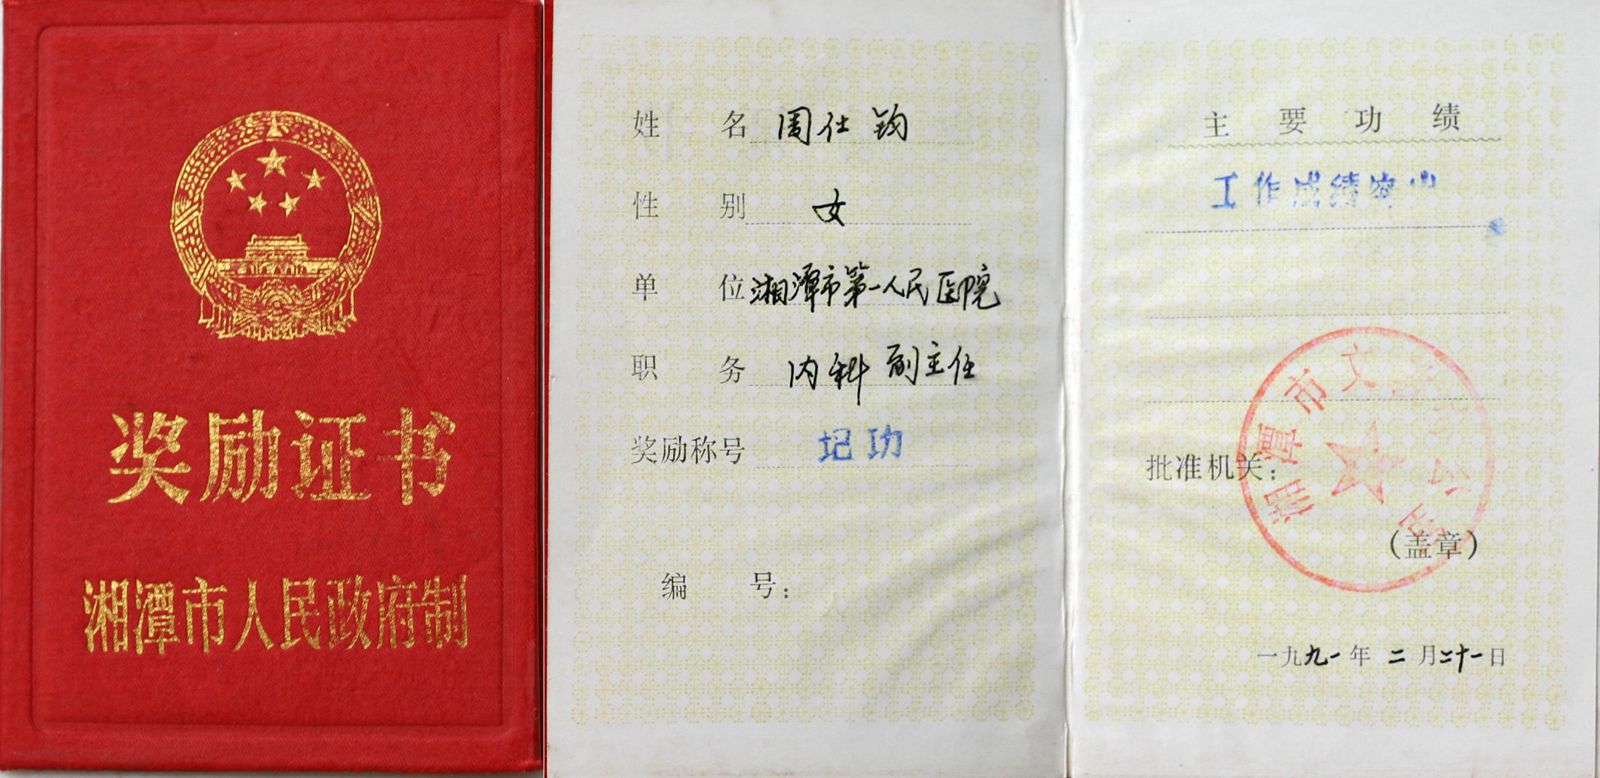 奖励证书
湘潭市人民政府制
姓 名 周仕钧
性 别 女
单 位 湘潭市第一人民医院
职 务 内科副主任
奖励称号 记功
编 号：
主要功绩
工作成绩突出
批准机关：
湘潭市文
公
(盖章)
一九九一年二月二十一日